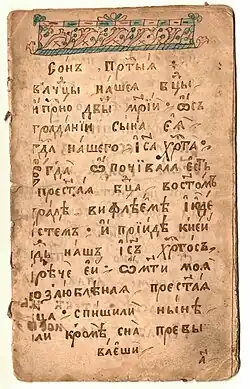 Сонъ Пр҃тыѧ
вл҃чцы нашеѧ бц҃ы
и прⷭ҇но дв҃ы мр҃їи · ѡ съ
традании сына еѧ
гд҇а нашего і҆с҃а хрⷭ҇та ·
гда ѡпочївала есть
прест҃аѧ бц҃а востомъ
граде вифлѣеме їиде
істемъ · и прїиде кнеи
дь нашъ і҆с҃ъ хрⷭ҇тосъ,
рѣче еи · ѡ мт҃и моѧ
возлюбленаѧ прест҃аѧ
ца · спиши ли нынѣ
или кромѣ сна превы
ваеши